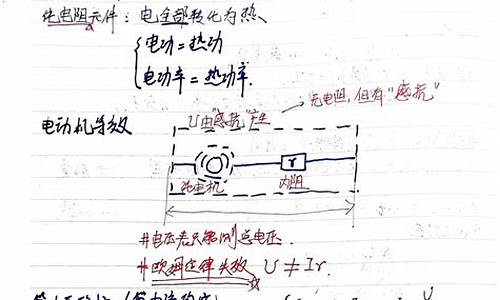 纯电阻元件：电全部转化为热、
电功=热功
电功率=热功率.
无电阻,但有"感抗"
U由"感抗"产生
电动机等效
r
纯电机 内阻
#电压表只能测总电压.
#欧姆定律失效 U ≠ Ir.